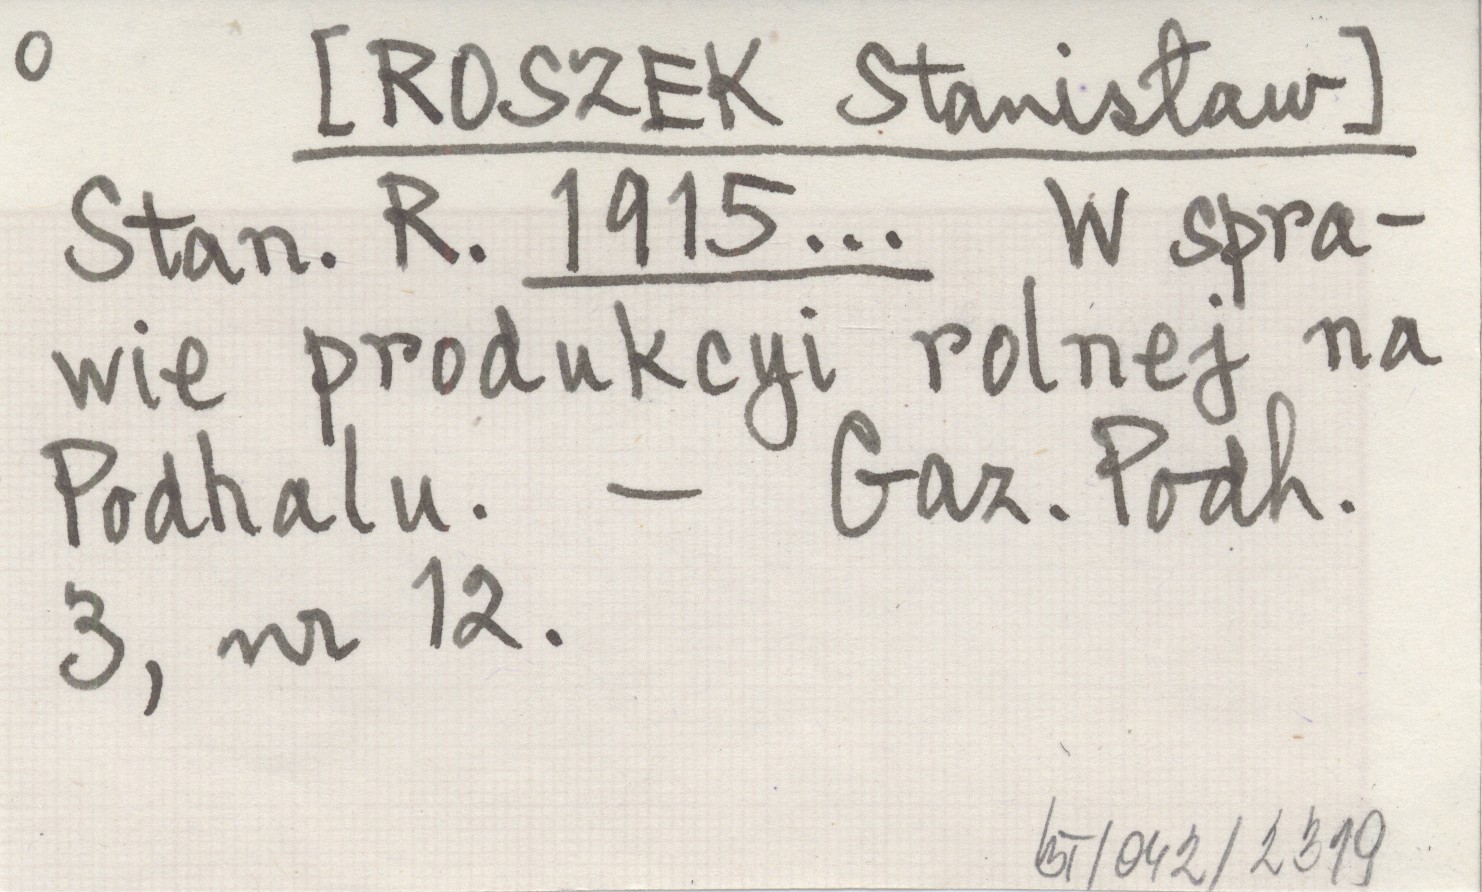 O [ROSZEK Stanisław]
Stan. R. 1915... W spra-
wie produkcyi rolnej na
Podhalu. — Gaz. Podh.
3, nr 12.
/042/2319